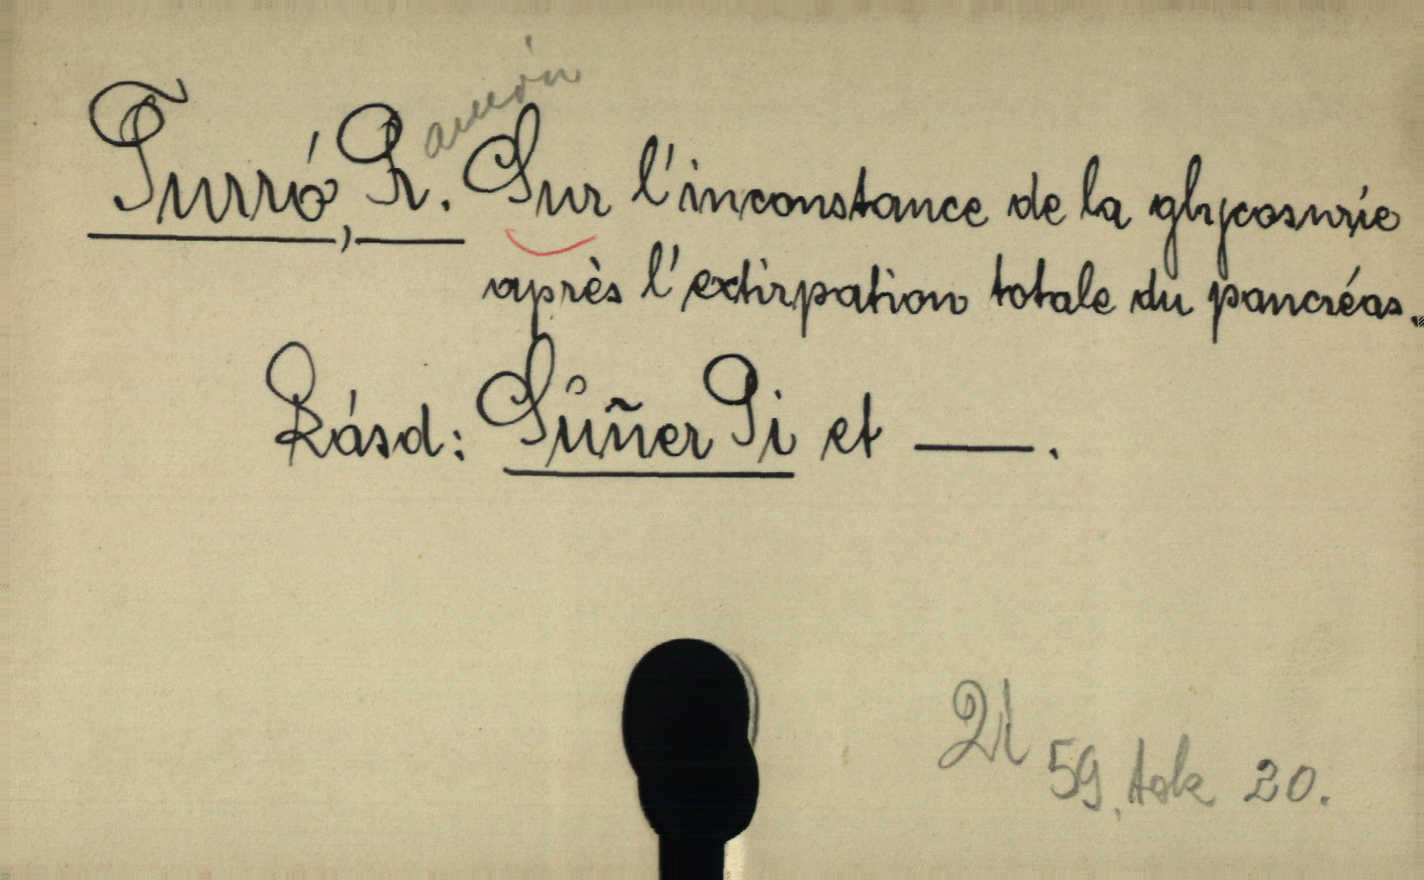 Turró, R.amón Sur l'inconstance de la glycosurie
après l'extirpation totale du pancréas.
Lásd: Súñer Pi et —.
Qi 59. tok 20.